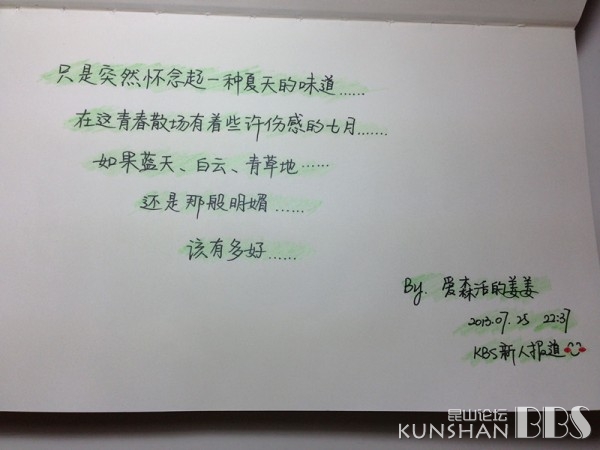 只是突然怀念起一种夏天的味道......
在这青春散场有着些许伤感的七月.......
如果蓝天、白云、青草地......
还是那般明媚......
该有多好......
By. 爱森活的姜姜
2013.07.25 22:37
KBS新人报道
昆山论坛
KUNSHAN BBS